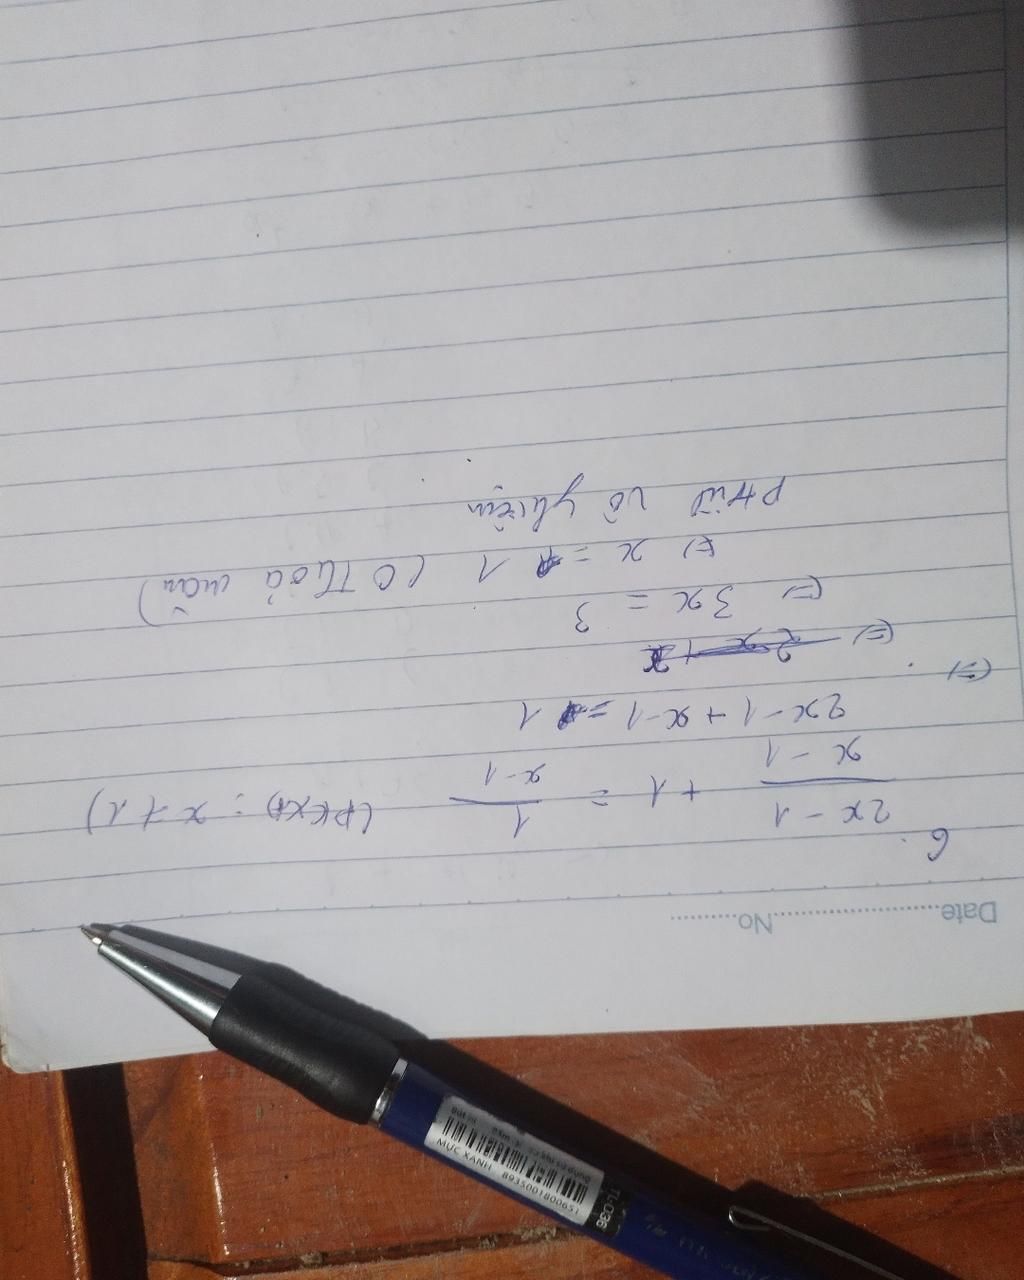 Date..............No..........
6.
2x - 1 / x - 1 + 1 = 1 / x - 1 (ĐKXĐ: x ≠ 1)
2x - 1 + x - 1 = 1
(=)
(=) 2x + x
(=) 3x = 3
(=) x = 1 (0 Thoả mãn)
Ptrìn vô nghiệm
MỰC XANH 8935001800651
TL-036